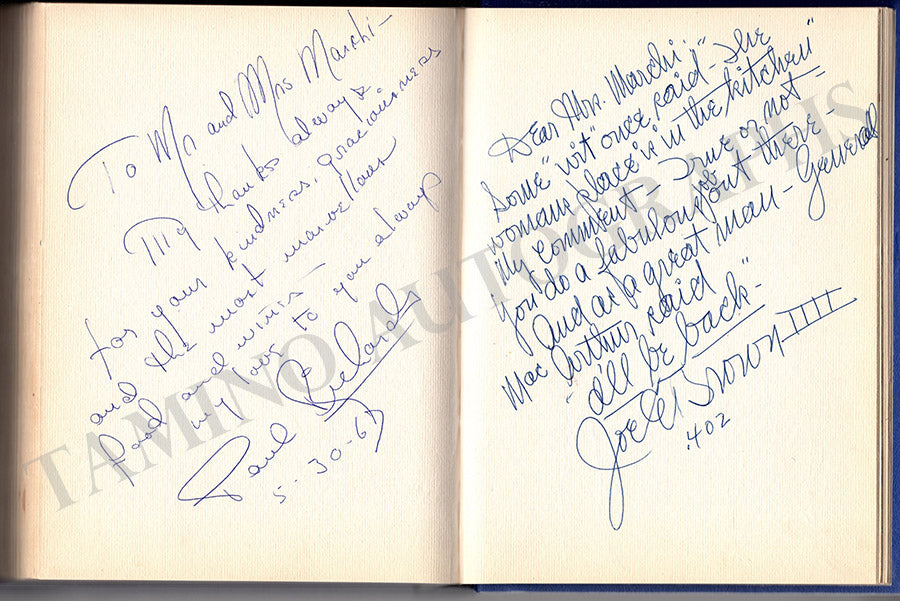 To Mr and Mrs Marchi -
My thanks always
for your kindness, graciousness
and the most marvellous
food and wines -
my love to you always
Paul Richards
5-30-67
Dear Mrs. Marchi:
Some "wit" once said - "The
womans place is in the kitchen"
My comment - True or not -
you do a fabulous job out there -
And as a great man - General
MacArthur said "
I'll be back -
Joe E Brown IIII
.402
TAMINO AUTOGRAPHS